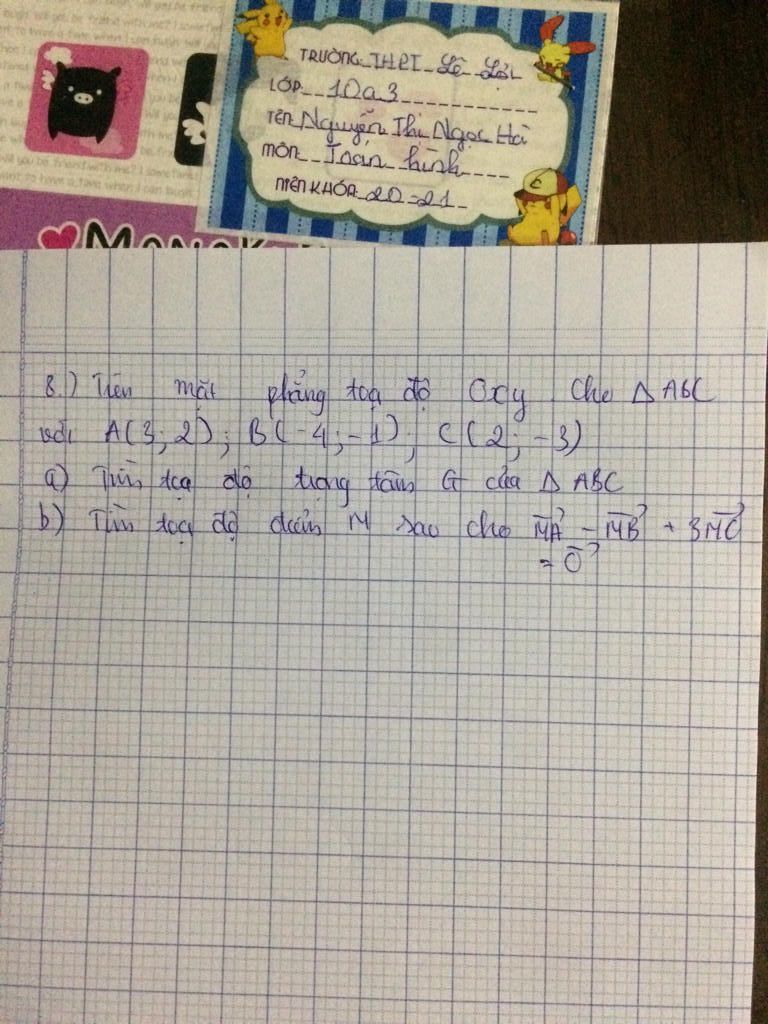 TRƯỜNG THPT Lê Lợi
LỚP 10a3
TÊN Nguyễn Thị Ngọc Hà
MÔN Toán hình
NIÊN KHÓA 20-21
8.) Trên mặt phẳng toạ độ Oxy cho Δ ABC
với A(3; 2); B(-4; -1); C(2; -3)
a) Tìm toạ độ trọng tâm G của Δ ABC
b) Tìm toạ độ điểm M sao cho MA⃗ - MB⃗ + 3MC⃗
= O⃗